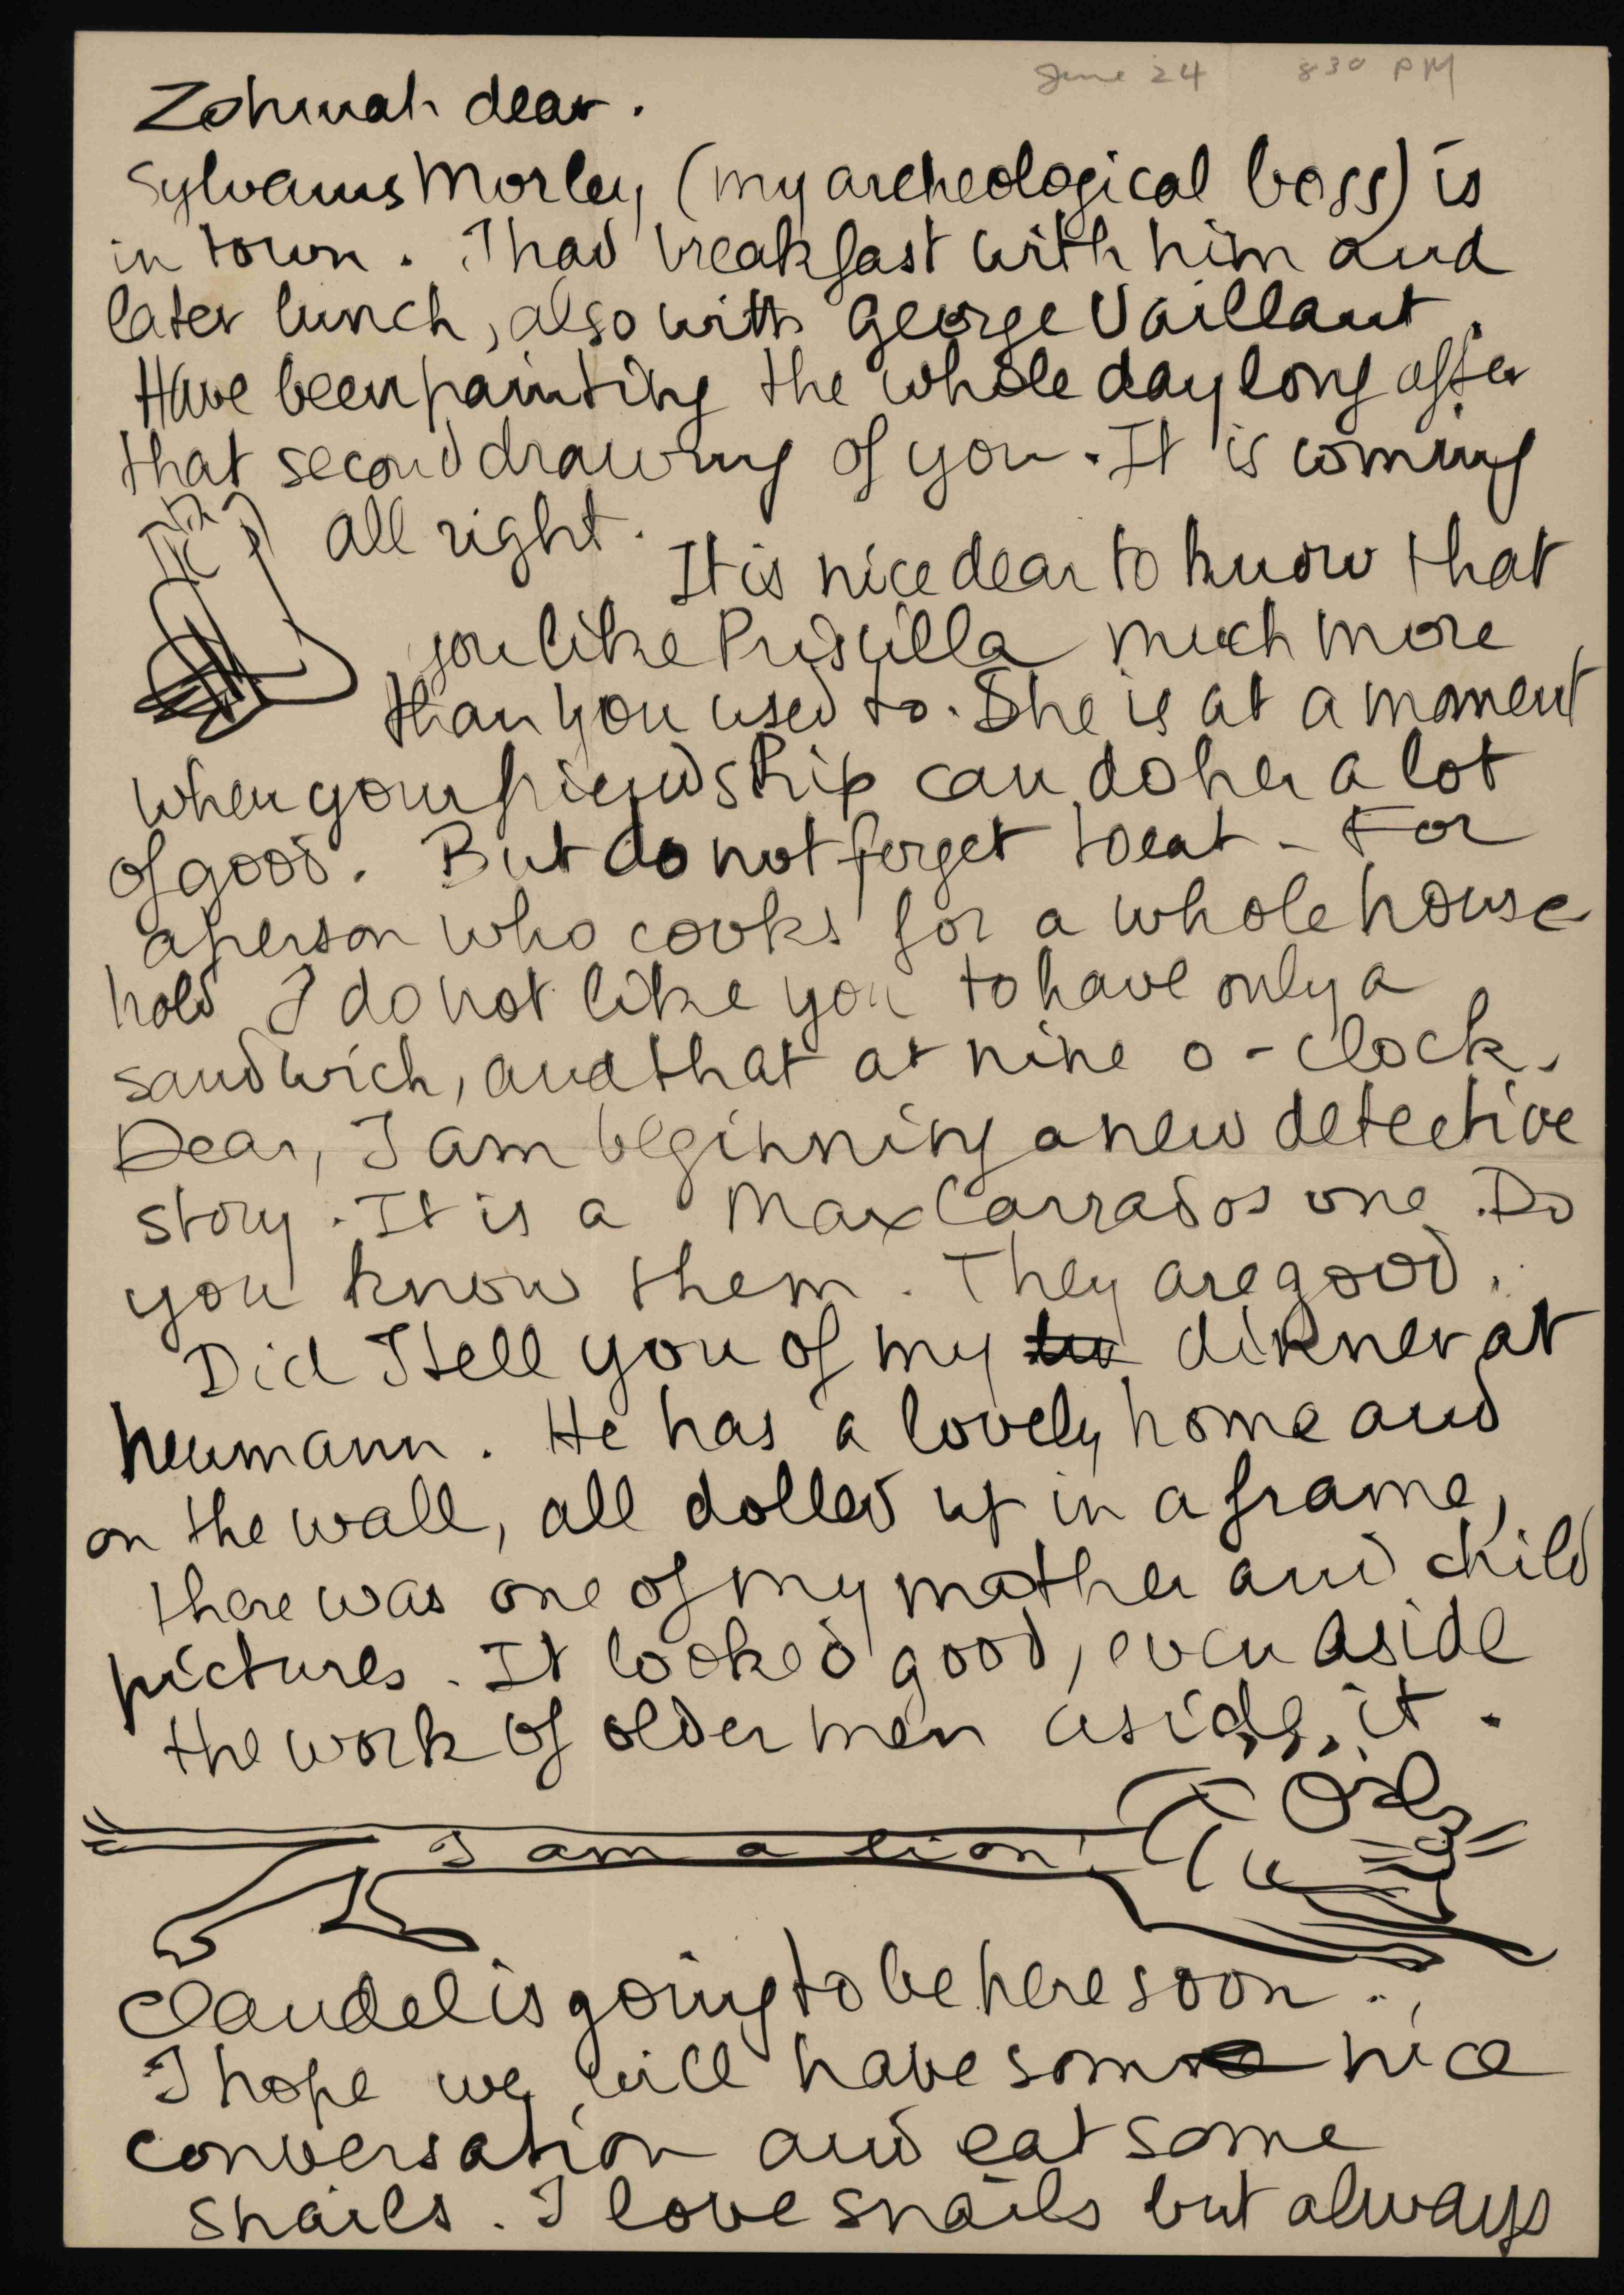 June 24 830 PM
Zohmah dear.
Sylvanus Morley, (my archeological boss) is
in town. I had breakfast with him and
later lunch, also with George Vaillant.
Have been painting the whole day long after
that second drawing of you. It is coming
all right.
It is nice dear to know that
you like Priscilla much more
than you used to. She is at a moment
when your friendship can do her a lot
of good. But do not forget to eat - For
a person who cooks for a whole house
hold I do not like you to have only a
sandwich, and that at nine o-clock.
Dear, I am beginning a new detective
story. It is a Max Carrados one. Do
you know them. They are good.
Did I tell you of my dinner at
Neumann. He has a lovely home and
on the wall, all dolled up in a frame,
there was one of my mother and child
pictures. It looked good, even aside
the work of older men aside it.
I am a lion!
Claudel is going to be here soon.
I hope we will have some nice
conversation and eat some
snails. I love snails but always